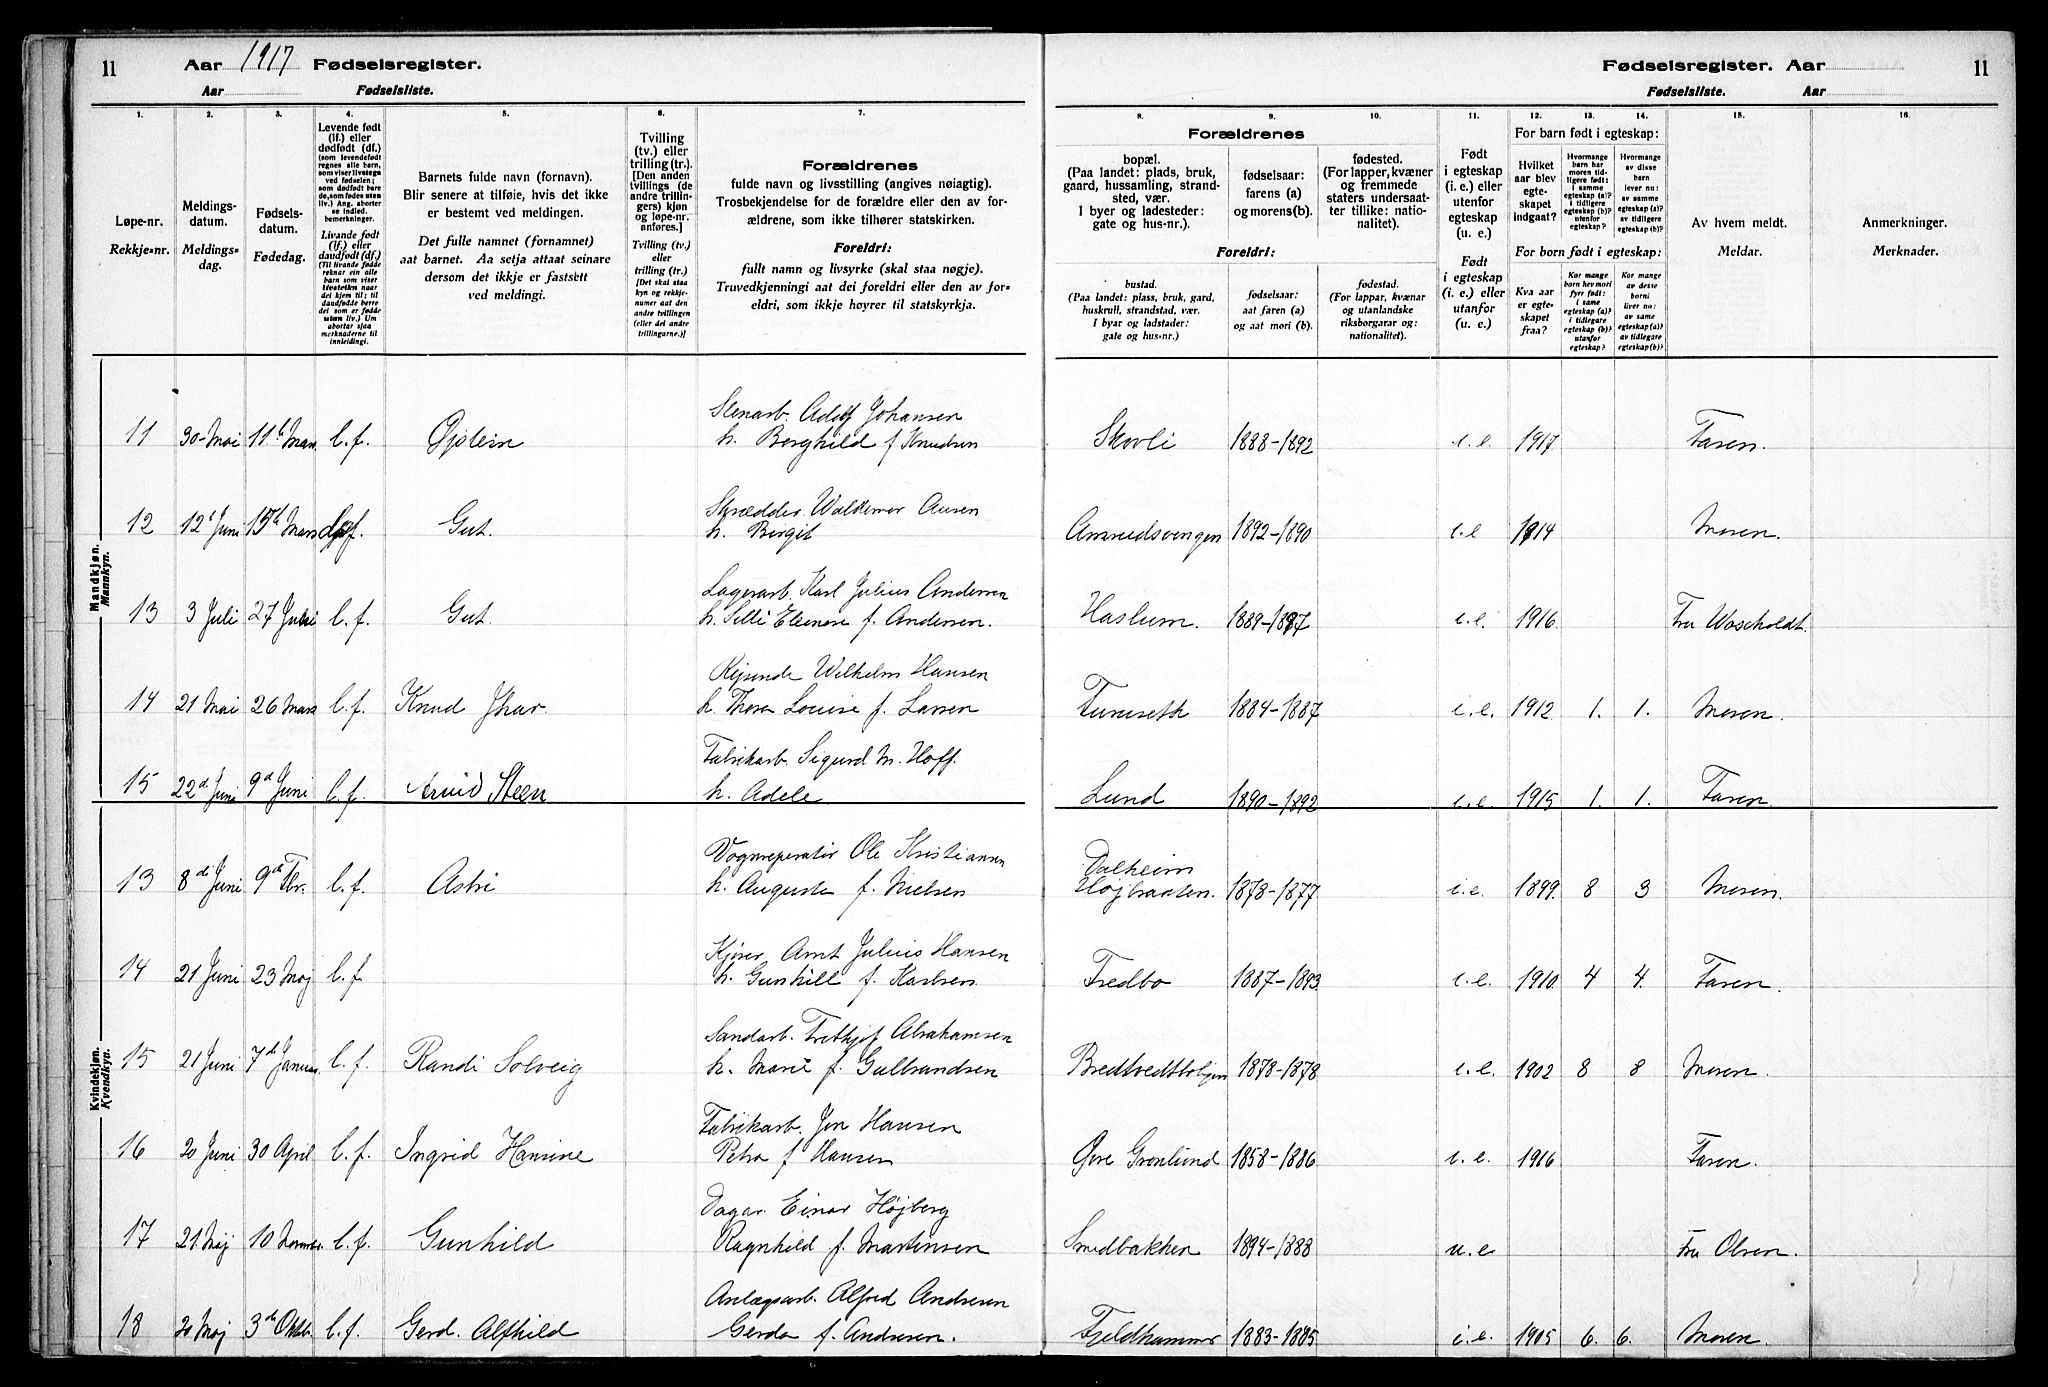 11 Aar 1917 Fødselsregister.
Aar Fødselsliste.
Fødselsregister. Aar 11
Fødselsliste. Aar
1. 2. 3. 4. 5. 6. 7. 8. 9. 10. 11. 12. 13. 14. 15. 16.
Løpe-nr.
Rekkje-nr.
Meldings-
datum.
Meldings-
dag.
Fødsels-
datum.
Fødedag.
Levende født
(lf.) eller
dødfødt (df.)
(som levendefødt
regnes alle barn,
som viser livstegn
ved fødselen;
som dødfødt bare
de, som fødes uten
liv.) Ang. aborter
se indled.
bemerkninger.
Livande født
(lf.) eller
daudfødt (df.)
(Til livande fødde
reknar ein alle
barn som viser
livsteikn naar
dei kjem til; til
daudfødde berre
dei som er fødde
utan liv.) Um
abortar sjaa
merknaderne til
innleidingi.
Barnets fulde navn (fornavn).
Blir senere at tilføie, hvis det ikke
er bestemt ved meldingen.
Det fulle namnet (fornamnet)
aat barnet. Aa setja attaat seinare
dersom det ikkje er fastsett
ved meldingi.
Tvilling
(tv.) eller
trilling (tr.).
[Den anden
tvillings (de
andre trillin-
gers) kjøn
og løpe-nr.
anføres.]
Tvilling (tv.)
eller
trilling (tr.)
[Det skal staa
kyn og rekkje-
numer aat den
andre tvillingen
(eller dei andre
trillingarne.)]
Forældrenes
fulde navn og livsstilling (angives nøiagtig).
Trosbekjendelse for de forældre eller den av for-
ældrene, som ikke tilhører statskirken.
Foreldri:
fullt namn og livsyrke (skal staa nøgje).
Truvedkjenningi aat dei foreldri eller den av for-
eldri, som ikkje høyrer til statskyrkja.
Forældrenes
bopæl.
(Paa landet: plads, bruk,
gaard, hussamling, strand-
sted, vær.
I byer og ladesteder:
gate og hus-nr.).
fødselsaar:
farens (a)
og morens (b).
fødested.
(For lapper, kvæner
og fremmede
staters undersaat-
ter tillike: natio-
nalitet).
Foreldri:
bustad.
(Paa landet: plass, bruk, gard,
huskrull, strandstad, vær.
I byar og ladstader:
gate og hus-nr.)
fødselsaar:
aat faren (a)
og aat mori (b).
fødestad.
(For lappar, kvænar
og utanlandske
riksborgarar og:
nationalitet).
Født
i egteskap
(i. e.) eller
utenfor
egteskap
(u. e.)
Født
i egteskap
(i. e.) eller
utanfor
(u. e.)
For barn født i egteskap:
Hvilket
aar blev
egte-
skapet
indgaat?
Hvormange
barn har
moren tid-
ligere født:
i samme
egteskap (a)?
i tidligere
egteskap (b)?
utenfor
egteskap?
Hvormange
av disse
barn
lever nu:
av samme
egteskap (a)?
av tidligere
egteskap (b)?
For born født i egteskap:
Kva aar
er egte-
skapet
fraa?
Kor mange
born hev mori
fyrr født:
i same
egteskap (a)?
i tidlegare
egteskap (b)?
utanfor
egteskap?
Kor mange
av desse
borni
liver no:
av same
egteskap (a)?
av tidlegare
egteskap (b)?
Av hvem meldt.
Meldar.
Anmerkninger.
Merknader.
Mandkjøn.
Mannkyn.
11 30-Mai 11te Mars l.f. Øjstein Stenarb. Adolf Johansen
h. Borghild f Knudsen Skovli 1888-1892 i.e. 1917 Faren.
12 12t Juni 15th Mars d.f. Gut. Skrædder Waldemar Ausen
h. Birgit 1892-1890 i.e 1914 Moren.
13 3 Juli 27 l.f. Gut. Lagerarb. Karl Julius Andersen
h. Silli Eleonore f. Andersen. Haslum. 1889-1887 i.e. 1916 Fru
14 21 Mai 26 Mars l.f. Knud Ihar Rejsende Wilhelm Hansen
h. Thora Louise f. Larsen Furuseth 1884-1887 i.e. 1912 1. 1. Moren.
15 22d Juni 9d Juni l.f. Arvid Steen Fabrikarb. Sigurd M. Hoff.
h. Adele Lund 1890-1892 i.e. 1915 1. 1. Faren.
Kvindekjøn.
Kvendkyn.
13 8de Juni 9de Fbr. l.f. Astri Vognreperatør Ole Kristiansen
h. Augusta f. Nielsen Dalheim
Højbraaten. 1878-1877 i.e. 1899 8 3 Moren.
14 21 Juni 23 Maj l.f. Kjører Arnt Julius Hansen
h. Gunhill f. Karlsen Fredbo 1887-1893 i.e. 1910 4 4. Faren.
15 21 Juni 7de Januar l.f. Randi Solveig Sandarb. Frithjof Abrahamsen
h. Marie f. Gulbrandsen 1878-1878 i.e. 1902 8 8 Moren.
16 20 Juni 30 April l.f. Ingrid Hansine Fabrikarb. Jon Hansen
Petra f Hansen Øvre Grønlund 1858-1886 i.e. 1916 Faren.
17 21. Maj 10 l.f. Gunhild Einar Højberg
Ragnhild f. Martinsen Smedbakken 1894-1888 u.e Fru Olsen.
18 20 Maj 3de Oktbr. l.f. Gerd. Alfhild Anlægsarb. Alfred Andresen
Gerda f. Andresen. Fjeldhammer 1883-1885 i.e. 1905 6. 6. Moren.